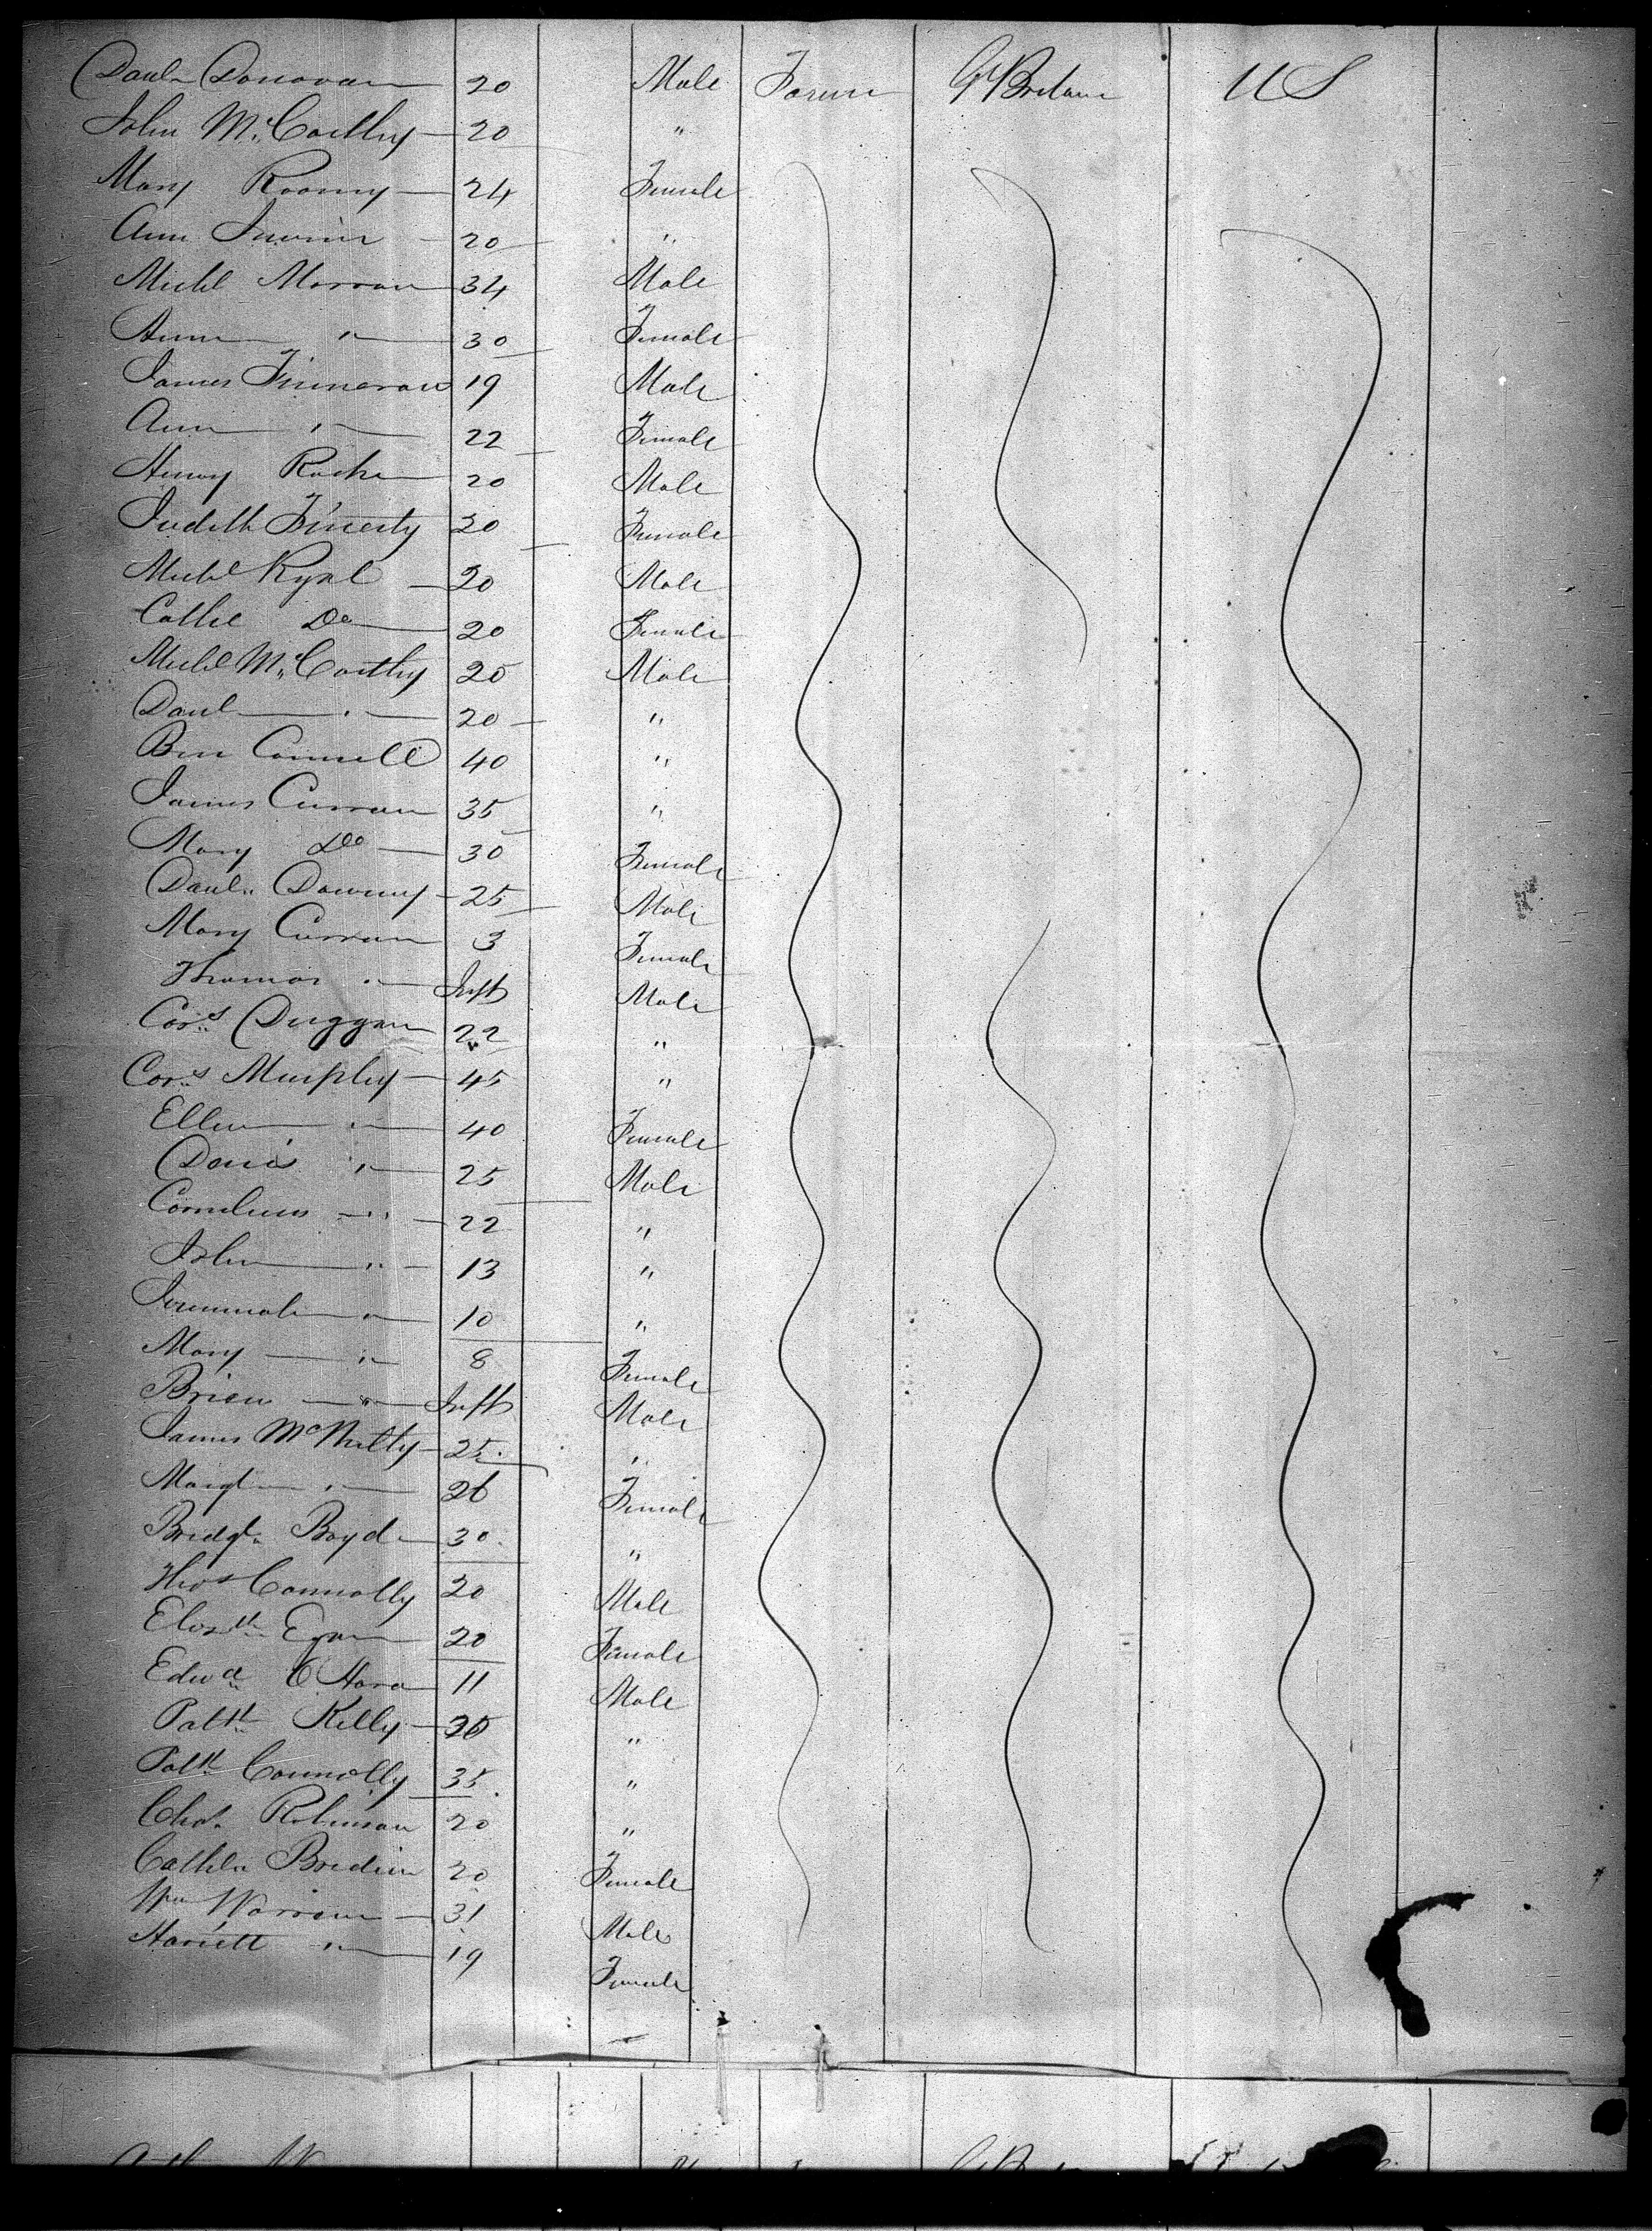 Danl. Donovan 20 Male Farmer Gt Britain US
John Mc.Carthy 20 "
Mary Roony 24 Female
Ann Irwin 20 "
Michl Morran 34 Male
Ann " 30 Female
James Finneran 19 Male
Ann " 22 Female
Henry Roche 20 Male
Judith Finerty 20 Female
Michl 20 Male
Cathe Do 20 Female
Michl Mc.Carthy 25 Male
Danl " 20 "
Ben Connell 40 "
James Curran 35 "
Mary Do 30 Female
Danl. Downy 25 Male
Mary Curran 3 Female
Thomas " Inft Male
Cors Duggan 22 "
Cors Murphy 45 "
Ellen " 40 Female
Denis " 25 Male
Cornelius " 22 "
John " 13 "
Jeremiah " 10 "
Mary " 8 Female
Brien " Inft Male
James McNulty 25 "
Margt " 26 Female
Bridgt. Boyd 30 "
Thos Connolly 20 Male
Elizth Egan 20 Female
Edwd O Hara 11 Male
Patk Kelly "
Patk Connolly 35 "
Chas. Robinson 20 "
Cathe. Bredin 20 Female
Wm Warren 31 Male
Harriett " 19 Female